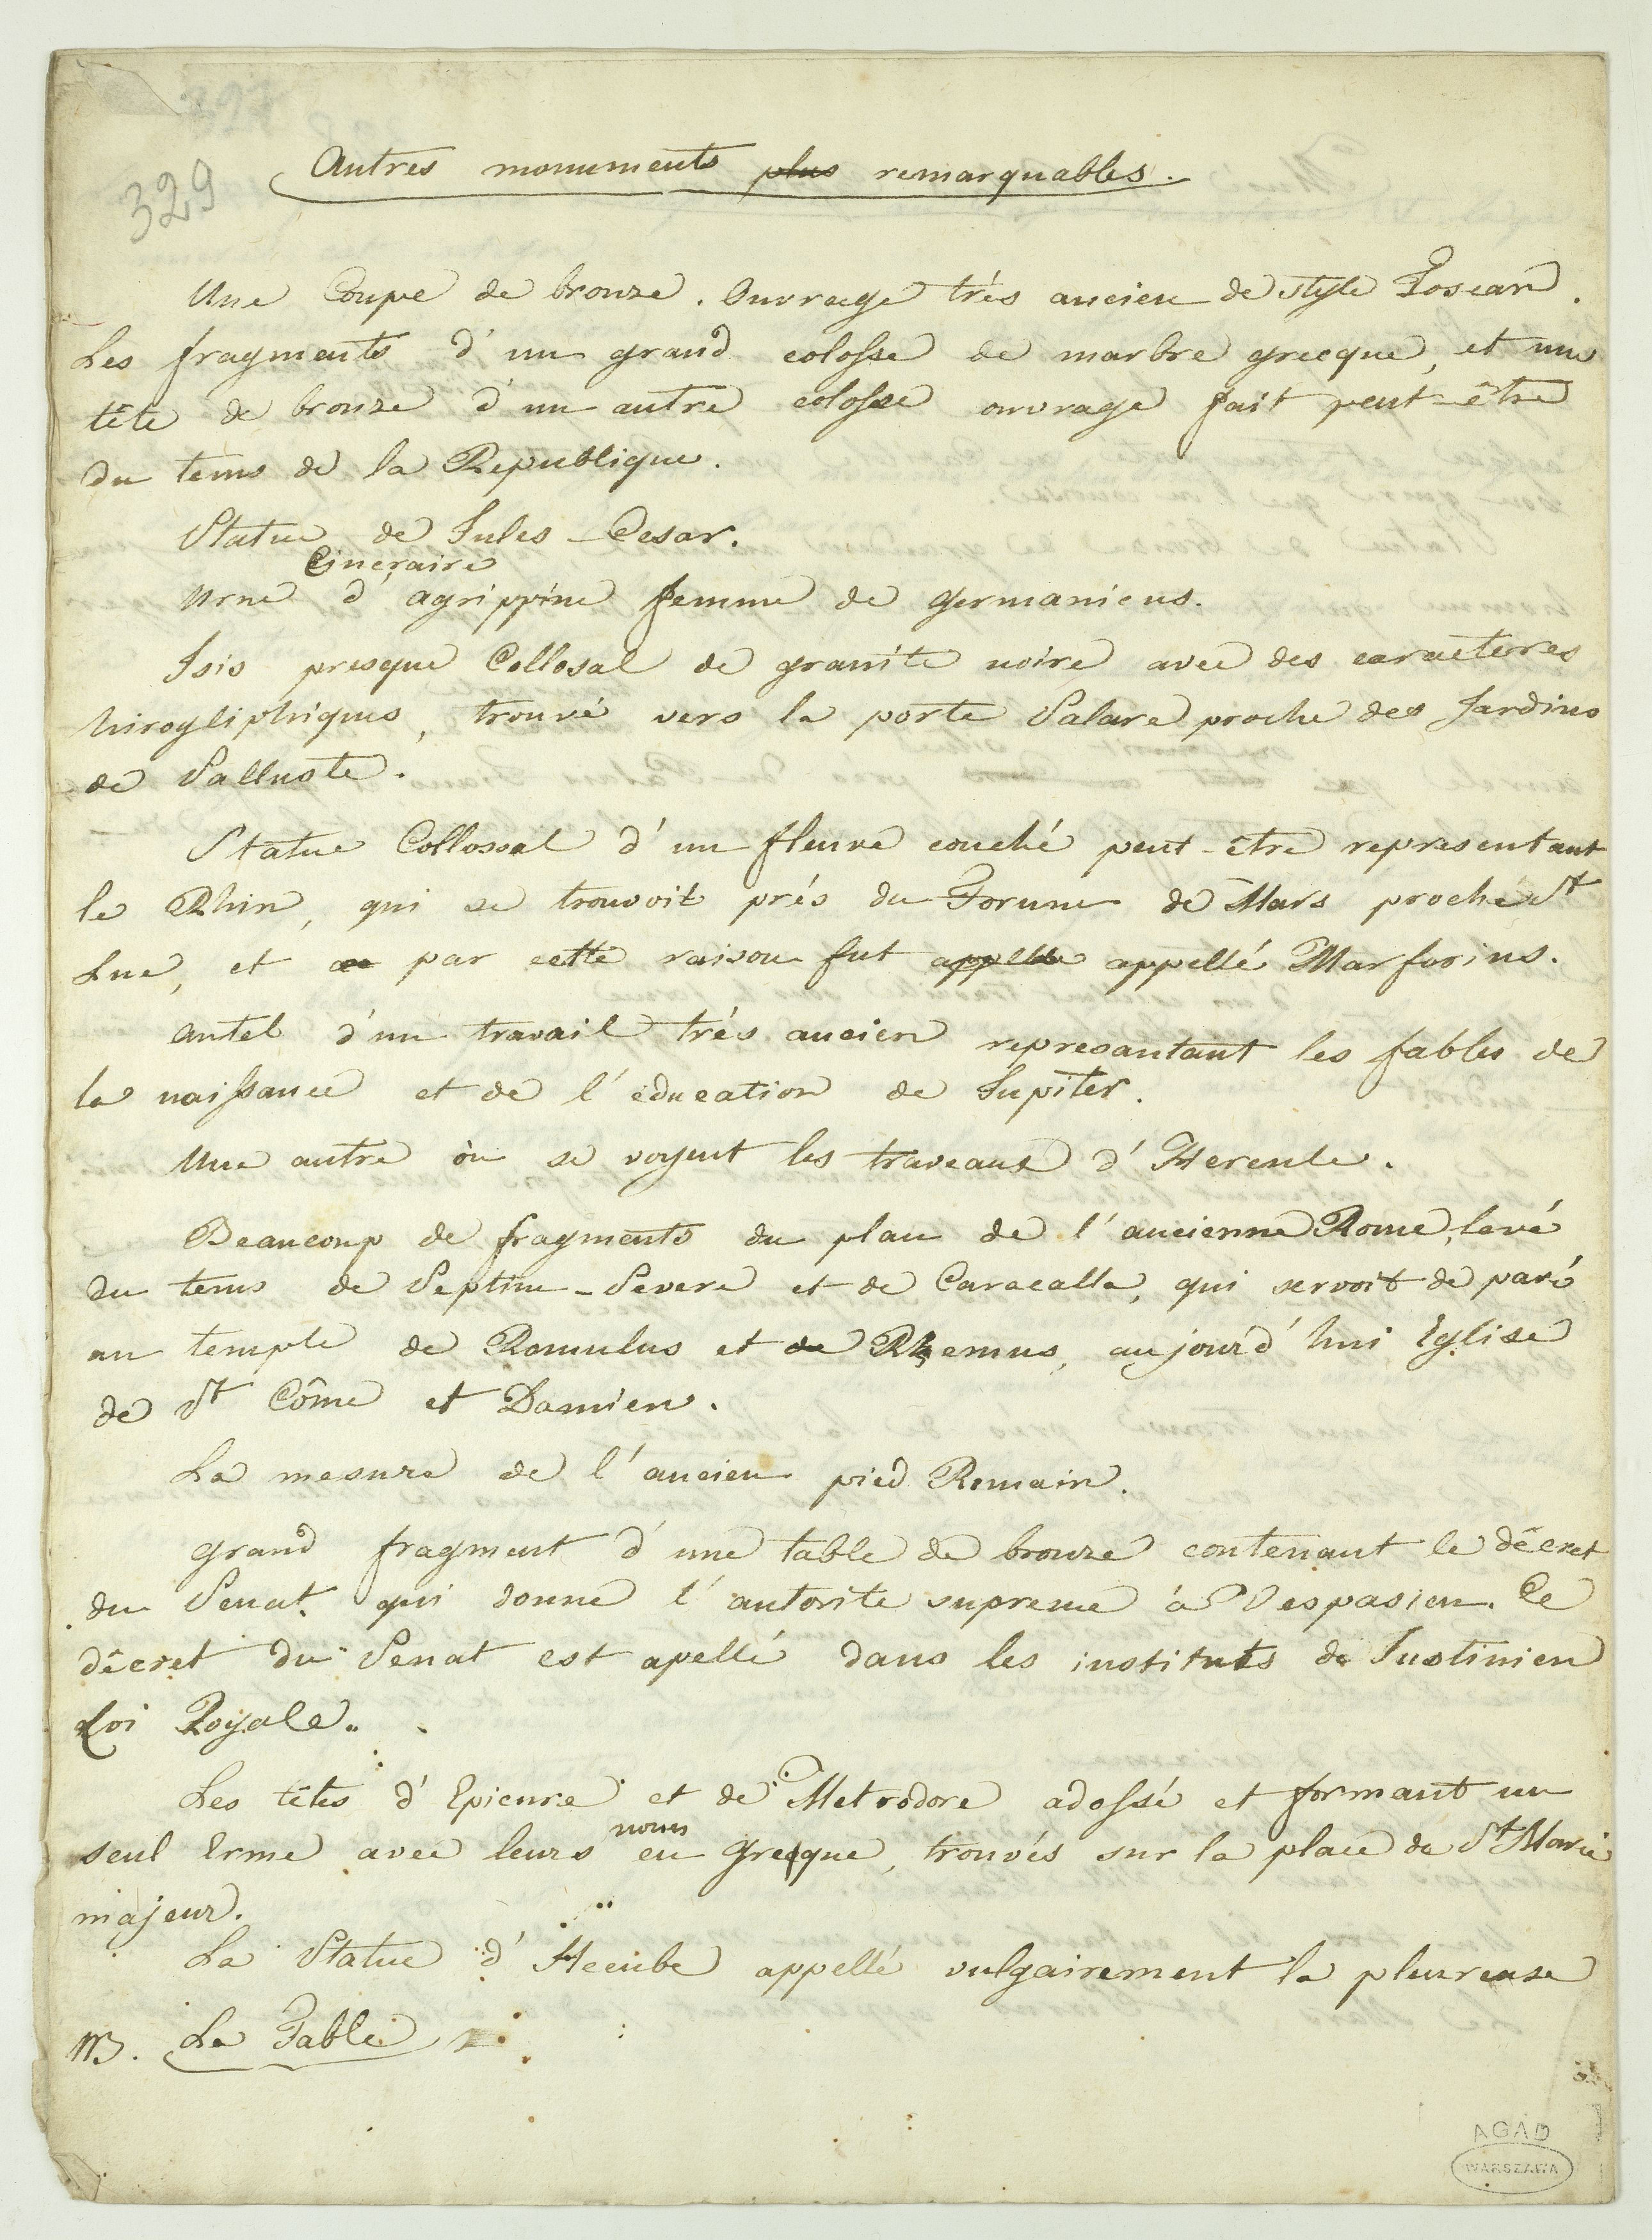 329
Autres monuments plus remarquables.
Une Coupe de bronze. Ouvrage très ancien de style Toscan.
Les fragments d'un grand colosse de marbre grecque, et une
tête de bronze d'un autre colosse ouvrage fait peut-être
du tems de la Republique.
Statue de Jules-Cesar.
Cineraire
Urne d'agrippine femme de germanicus.
Isis presque Collosal de granite noire avec des caracteres
hirogliphiques, trouvé vers la porte Salare proche des Jardins
de Salluste.
Statue Collossal d'un fleuve couché peut-être representant
le Rhin, qui se trouvoit près du Forum de Mars proche St
Luc, et par cette raison fut appellé appellé Marforius.
Autel d'un travail très ancien represantant les fables de
la naissance et de l'éducation de Jupiter.
Une autre òu se voyent les traveaux d'Hercule.
Beaucoup de fragments du plan de l'ancienne Rome, levé
du tems de Septime-Severe et de Caracalla, qui servoit de pavé
au temple de Romulus et de Remus, aujourd'hui Eglise
de St Côme et Damien.
La mesure de l'ancien pied Romain.
Grand fragment d'une table de bronze contenant le décret
du Senat qui donne l'autorite supreme à Vespasien. Ce
décret du Senat est apellé dans les instituts de Justinien
Loi Royale.
Les têtes d'Epicure et de Metrodore adossé et formant un
noms
seul Erme avec leurs en grecque, trouvés sur la place de St Marie
majeur.
La Statue d'Hecube appellé vulgairement la pleureuse
NB. La Table
AGAD
WARSZAWA